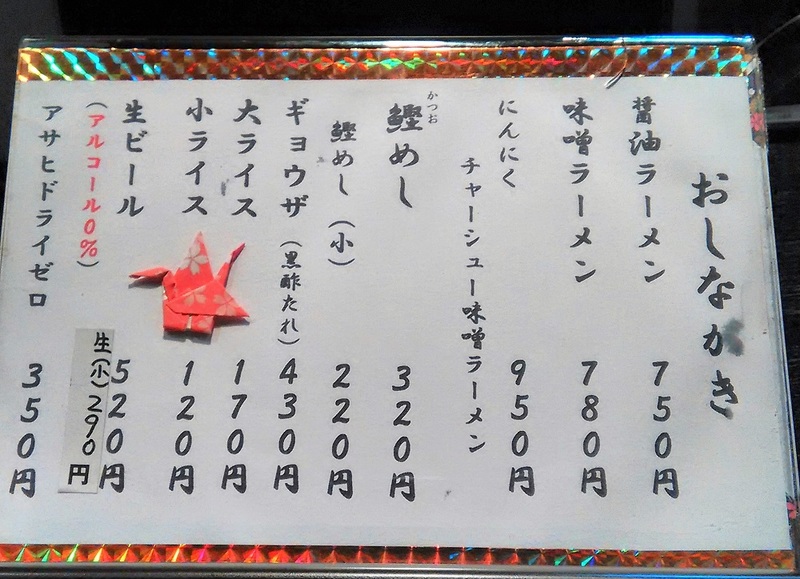 おしながき
醤油ラーメン 750円
味噌ラーメン 780円
にんにく
チャーシュー味噌ラーメン 950円
かつお
鰹めし 320円
鰹めし(小) 220円
ギョウザ(黒酢たれ) 430円
大ライス 170円
小ライス 120円
生ビール 520円
生(小)290円
(アルコール0%)
アサヒドライゼロ 350円